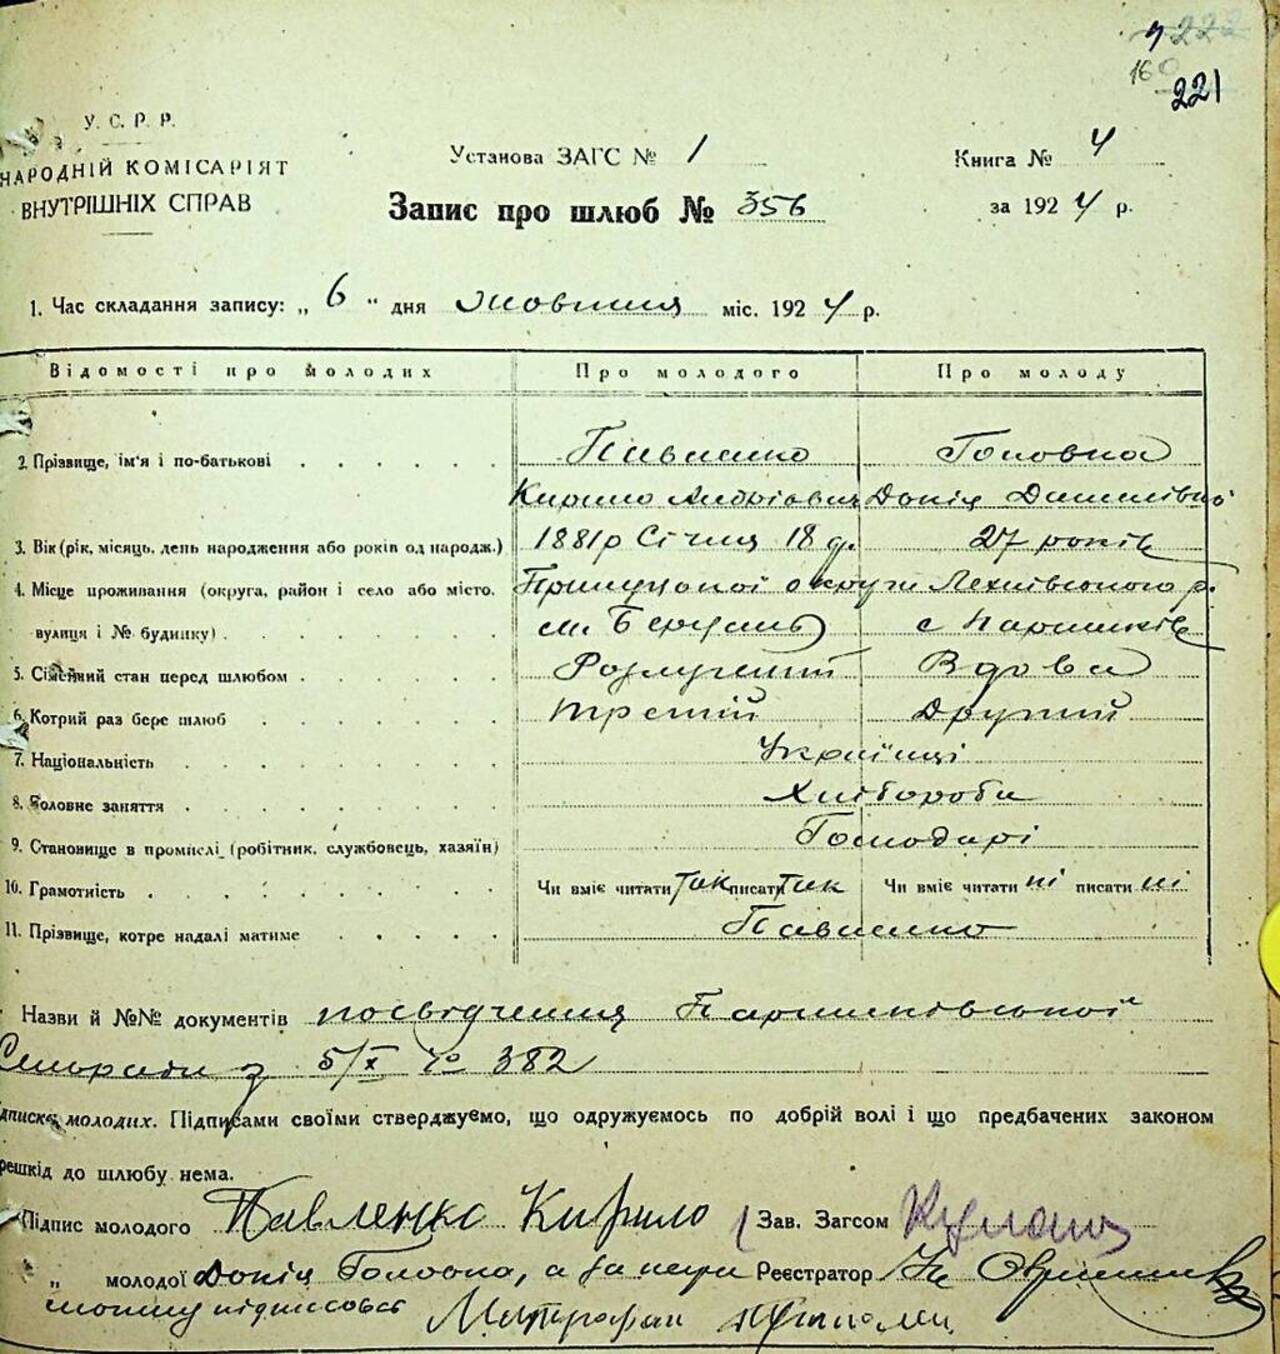 222
160
221
У. С. Р. Р.
НАРОДНІЙ КОМІСАРІЯТ
ВНУТРІШНІХ СПРАВ
Установа ЗАГС № 1
Книга № 4
Запис про шлюб № 356
за 1924 р.
1. Час складання запису: „ 6 " дня Жовтня міс. 1924 р.
Відомості про молодих Про молодого Про молоду
2. Прізвище, ім'я і по-батькові Павленко Головко
Кирило Андрієвич Докія Данилівна
3. Вік (рік, місяць, день народження або років од народж.) 1881р Січня 18 д. 27 років
4. Місце проживання (округа, район і село або місто, Прилуцької округи Яхнівського р.
вулиця і № будинку) с Паришків
5. Сімейний стан перед шлюбом Розлучений Вдова
6. Котрий раз бере шлюб третій Другий
7. Національність Українці
8. Головне заняття Хлібороби
9. Становище в промислі (робітник, службовець, хазяїн) Господарі
10. Грамотність Чи вміє читати Так писати Так Чи вміє читати ні писати ні
11. Прізвище, котре надалі матиме Павленко
Назви й №№ документів посвідчення Паришківської
Сільради з 5/X № 382
дписка молодих. Підписами своїми стверджуємо, що одружуємось по добрій волі і що предбачених законом
решкід до шлюбу нема.
Підпис молодого Павленко Кирило Зав. Загсом
„ молодої Докія Головко, а за неї Реєстратор
підписався Митрофан